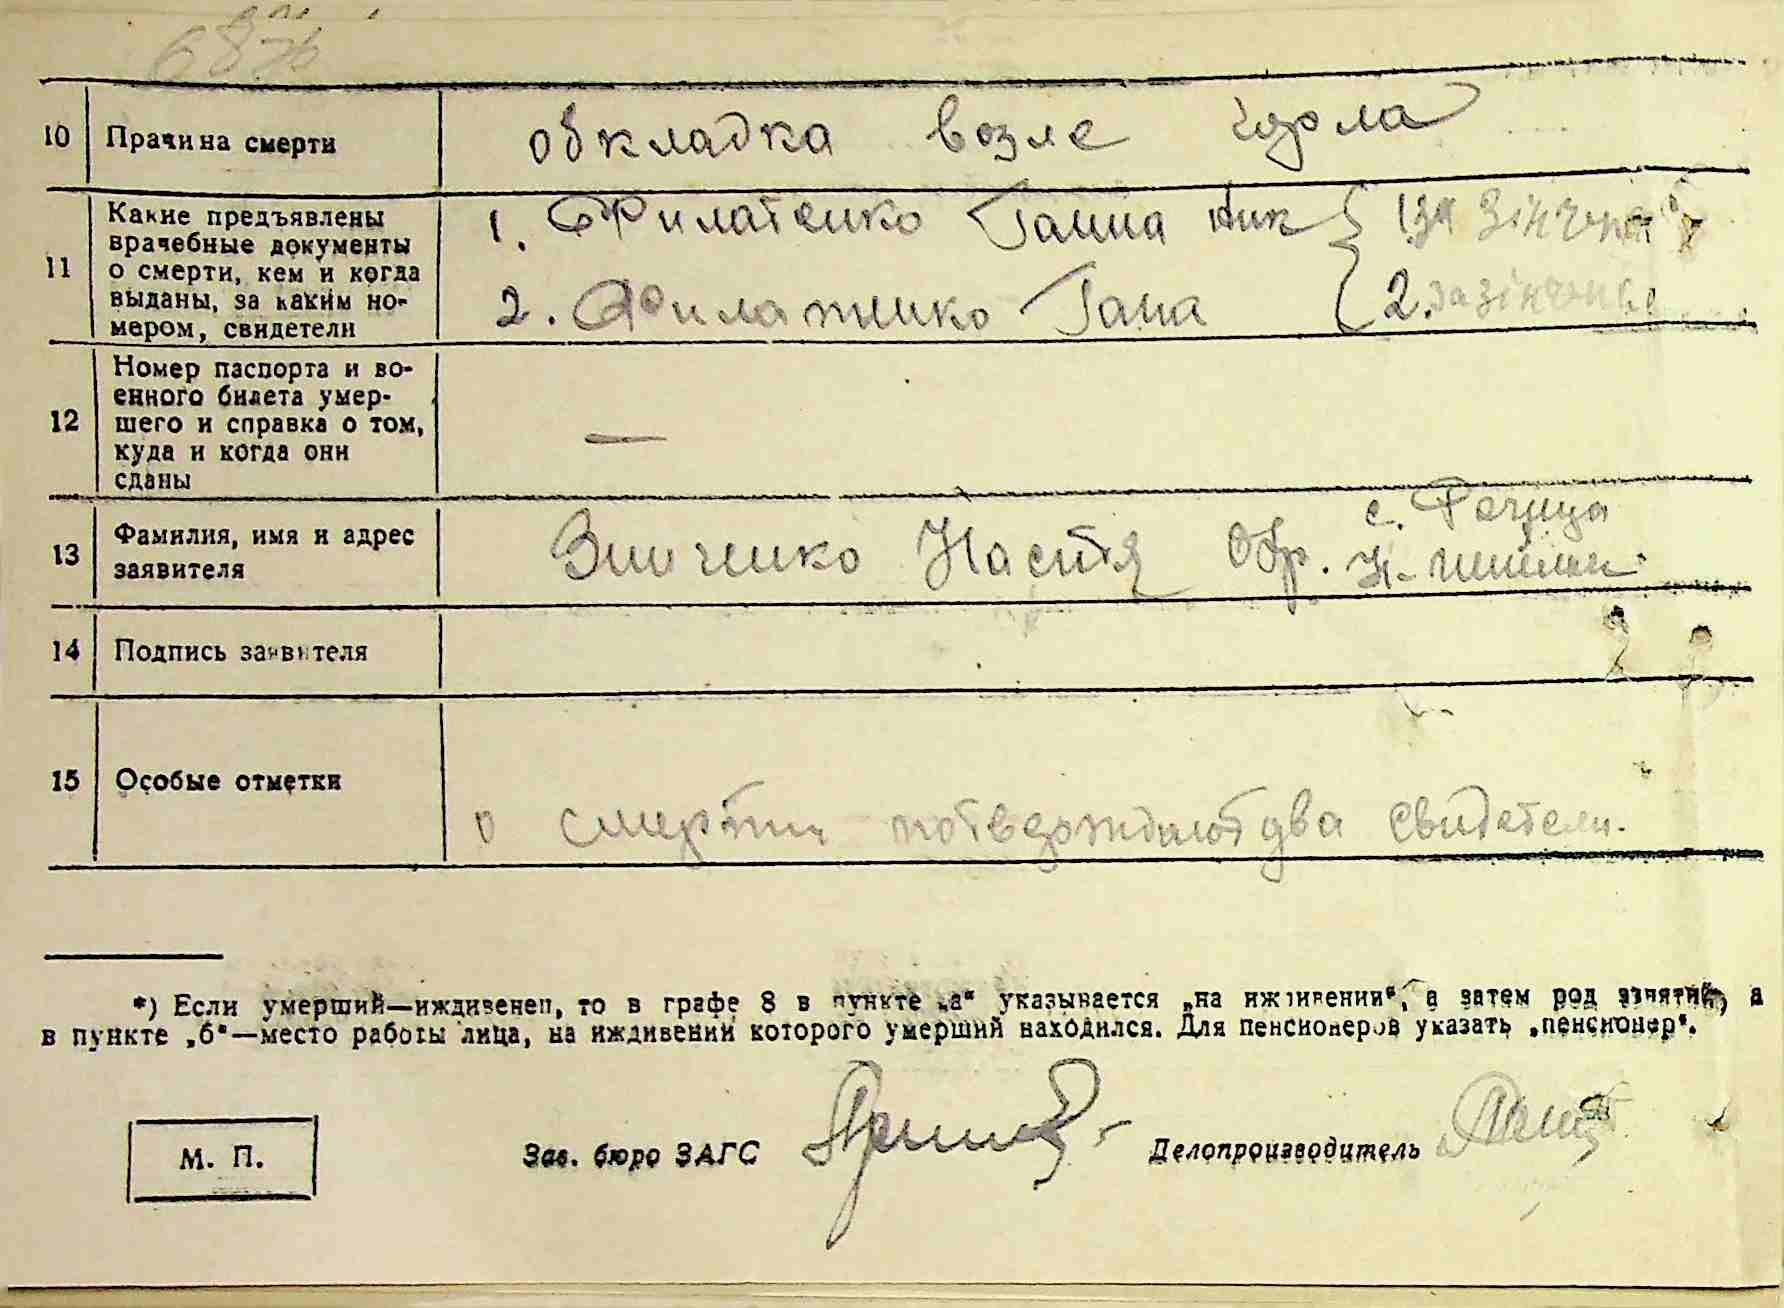 10 Причина смерти обкладка возле горла
11 Какие предъявлены
врачебные документы
о смерти, кем и когда
выданы, за каким но-
мером, свидетели
1. Филатенко Ганна Ник
2. Филатенко Гана
12 Номер паспорта и во-
енного билета умер-
шего и справка о том,
куда и когда они
сданы
—
13 Фамилия, имя и адрес
заявителя
Зинченко Настя Обр. с. Речица
14 Подпись заявителя
15 Особые отметки
о смерти потверждают два свидетели.
*) Если умерший—иждивенец, то в графе 8 в пункте „а“ указывается „на иждивении“, а затем род занятий, а
в пункте „б“—место работы лица, на иждивении которого умерший находился. Для пенсионеров указать „пенсионер“.
М. П. Зав. бюро ЗАГС Делопроизводитель